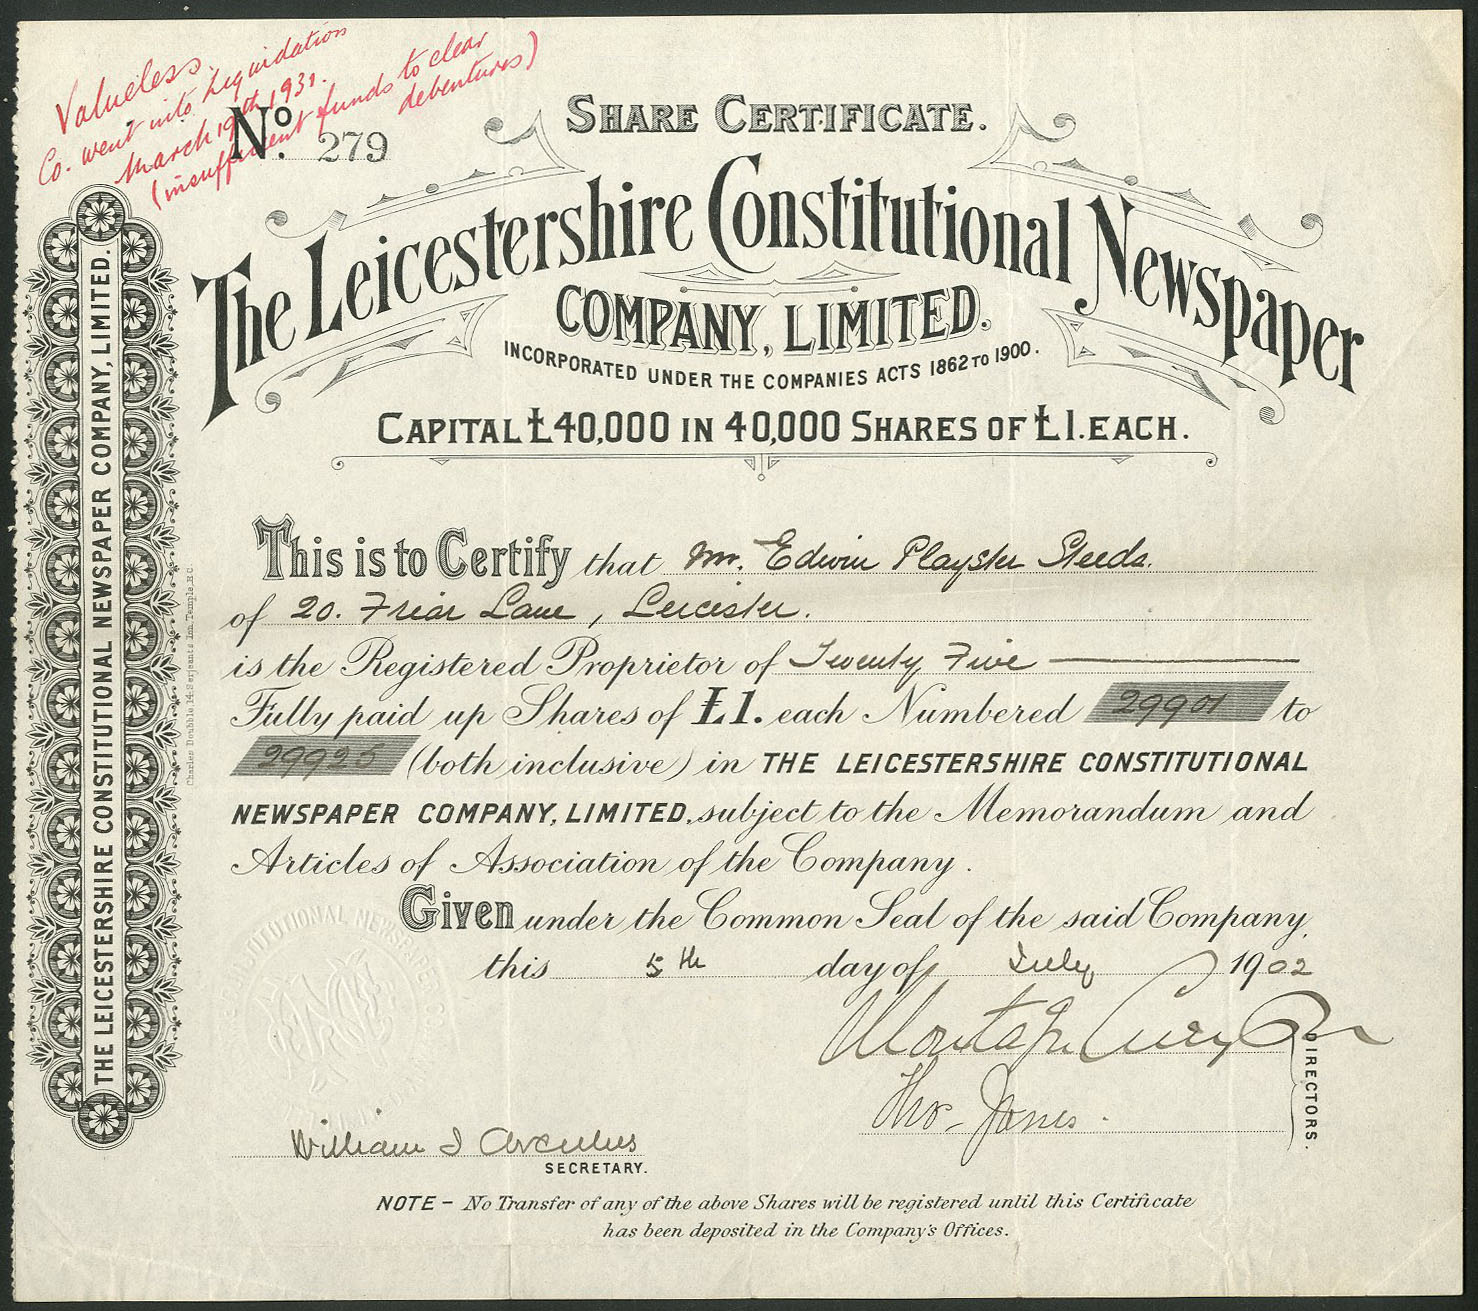 Valueless.
Co. went into liquidation
March 19th 1931.
(insufficient funds to clear
debentures)
No. 279
SHARE CERTIFICATE.
The Leicestershire Constitutional Newspaper
COMPANY, LIMITED.
INCORPORATED UNDER THE COMPANIES ACTS 1862 TO 1900.
CAPITAL £40,000 IN 40,000 SHARES OF £1. EACH.
This is to Certify that Mr. Edwin Playster Steeds.
of 20. Friar Lane, Leicester.
is the Registered Proprietor of Twenty Five
Fully paid up Shares of £1. each Numbered 29901 to
29925 (both inclusive) in THE LEICESTERSHIRE CONSTITUTIONAL
NEWSPAPER COMPANY, LIMITED, subject to the Memorandum and
Articles of Association of the Company.
Given under the Common Seal of the said Company,
this 5th day of July 1902
Thos. Jones.
DIRECTORS.
William J Arculus
SECRETARY.
NOTE - No Transfer of any of the above Shares will be registered until this Certificate
has been deposited in the Company's Offices.
THE LEICESTERSHIRE CONSTITUTIONAL NEWSPAPER COMPANY, LIMITED.
Charles Doubble, 14, Serjeants Inn, Temple, E.C.